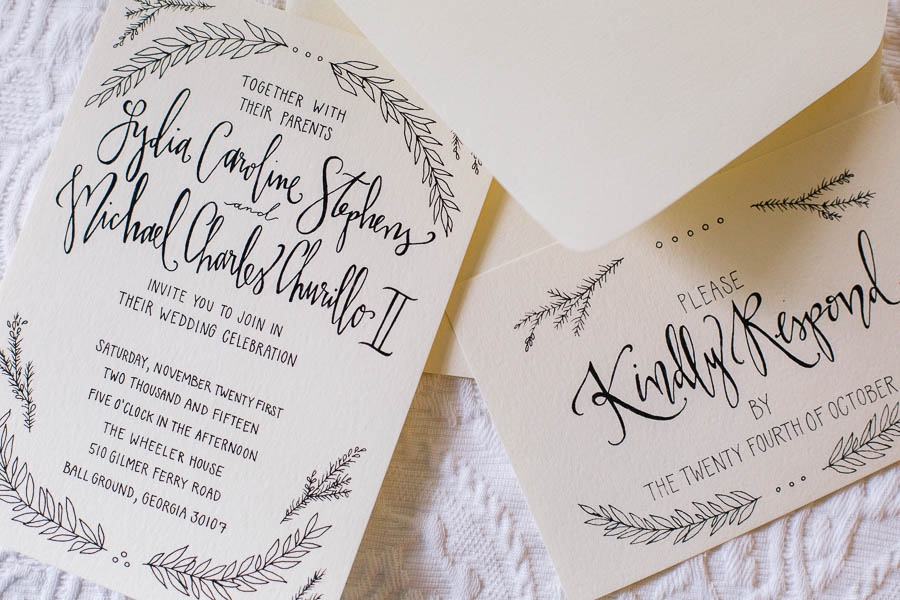 TOGETHER WITH
THEIR PARENTS
Lydia Caroline Stephens
and
Michael Charles Churillo II
INVITE YOU TO JOIN IN
THEIR WEDDING CELEBRATION
SATURDAY, NOVEMBER TWENTY FIRST
TWO THOUSAND AND FIFTEEN
FIVE O'CLOCK IN THE AFTERNOON
THE WHEELER HOUSE
510 GILMER FERRY ROAD
BALL GROUND, GEORGIA 30107
PLEASE
Kindly Respond
BY
THE TWENTY FOURTH OF OCTOBER